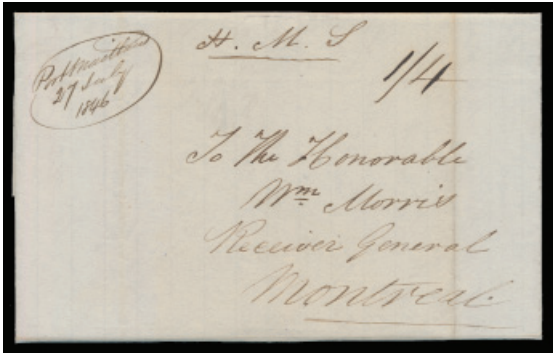 Port Maitland
27 July
1846
H. M. S
1/4
To The Honorable
Wm Morris
Receiver General
Montreal.